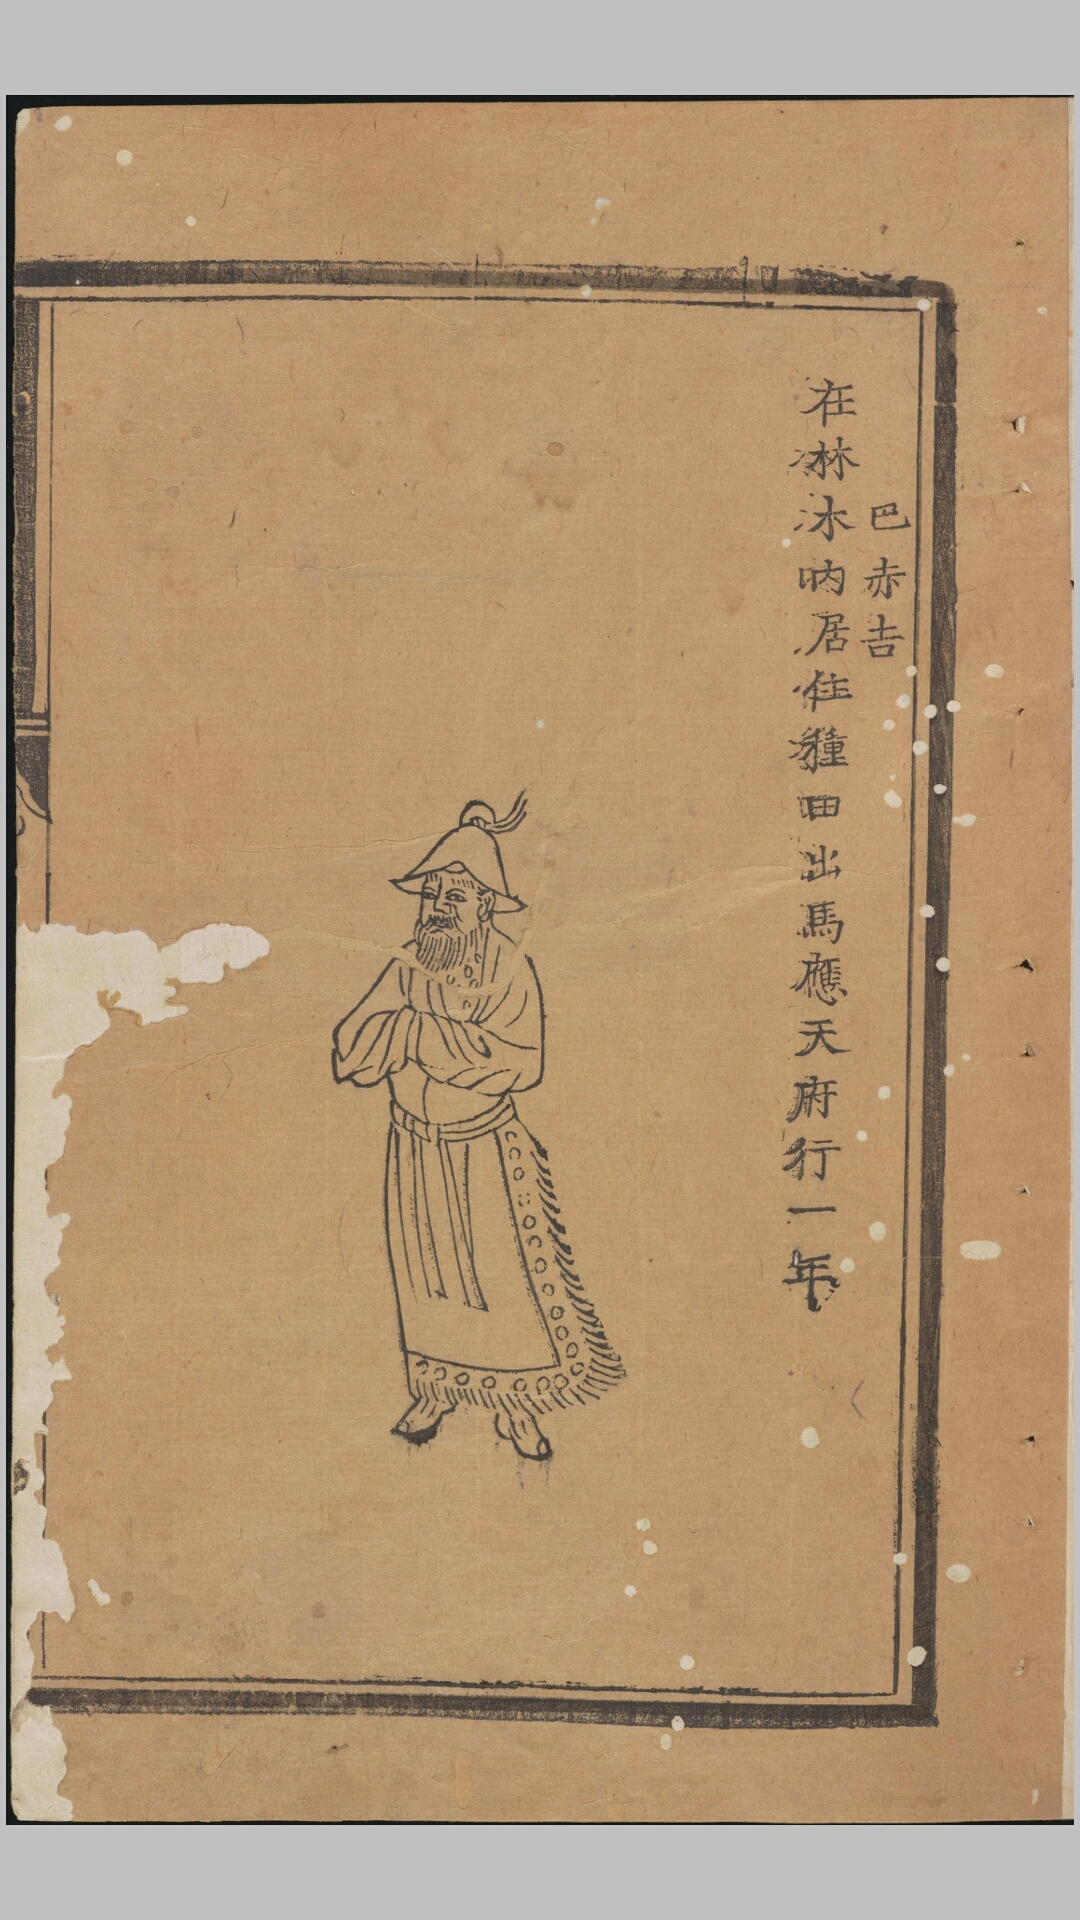 巴赤吉
在淋沐吶居住種田出馬應天府行一年